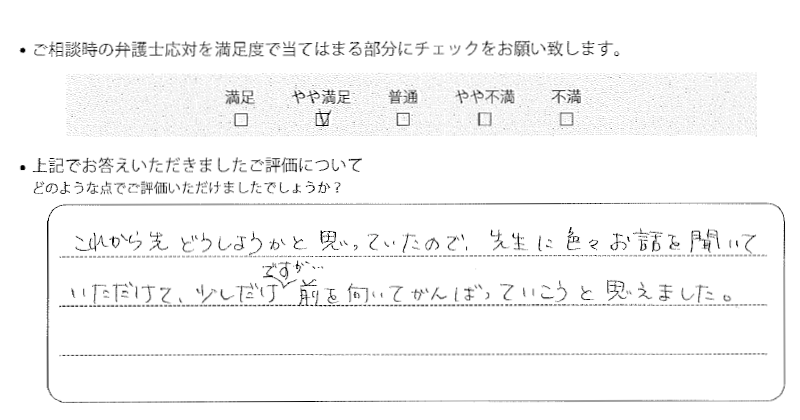 • ご相談時の弁護士応対を満足度で当てはまる部分にチェックをお願い致します。
満足 やや満足 普通 やや不満 不満
□ ☑ □ □ □
• 上記でお答えいただきましたご評価について
どのような点でご評価いただけましたでしょうか？
これから先どうしようかと思っていたので、先生に色々お話を聞いて
ですが…
いただけて、少しだけ前を向いてがんばっていこうと思えました。